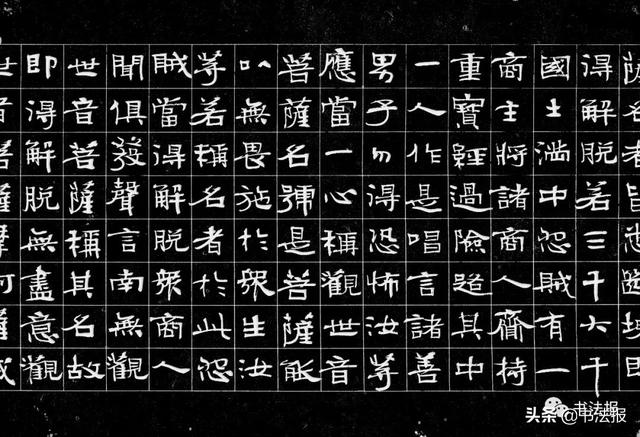 薩名者皆悉斷壞即
得解脫若三千大千
國土滿中怨賊有一
商主將諸商人齎持
重寶經過險道其中
一人作是唱言諸善
男子勿得恐怖汝等
應當一心稱觀世音
菩薩名號是菩薩能
以無畏施於眾生汝
等若稱名者於此怨
賊當得解脫眾商人
聞俱發聲言南無觀
世音菩薩稱其名故
即得解脫無盡意觀
世音菩薩摩訶薩威
书法报
头条@书法报